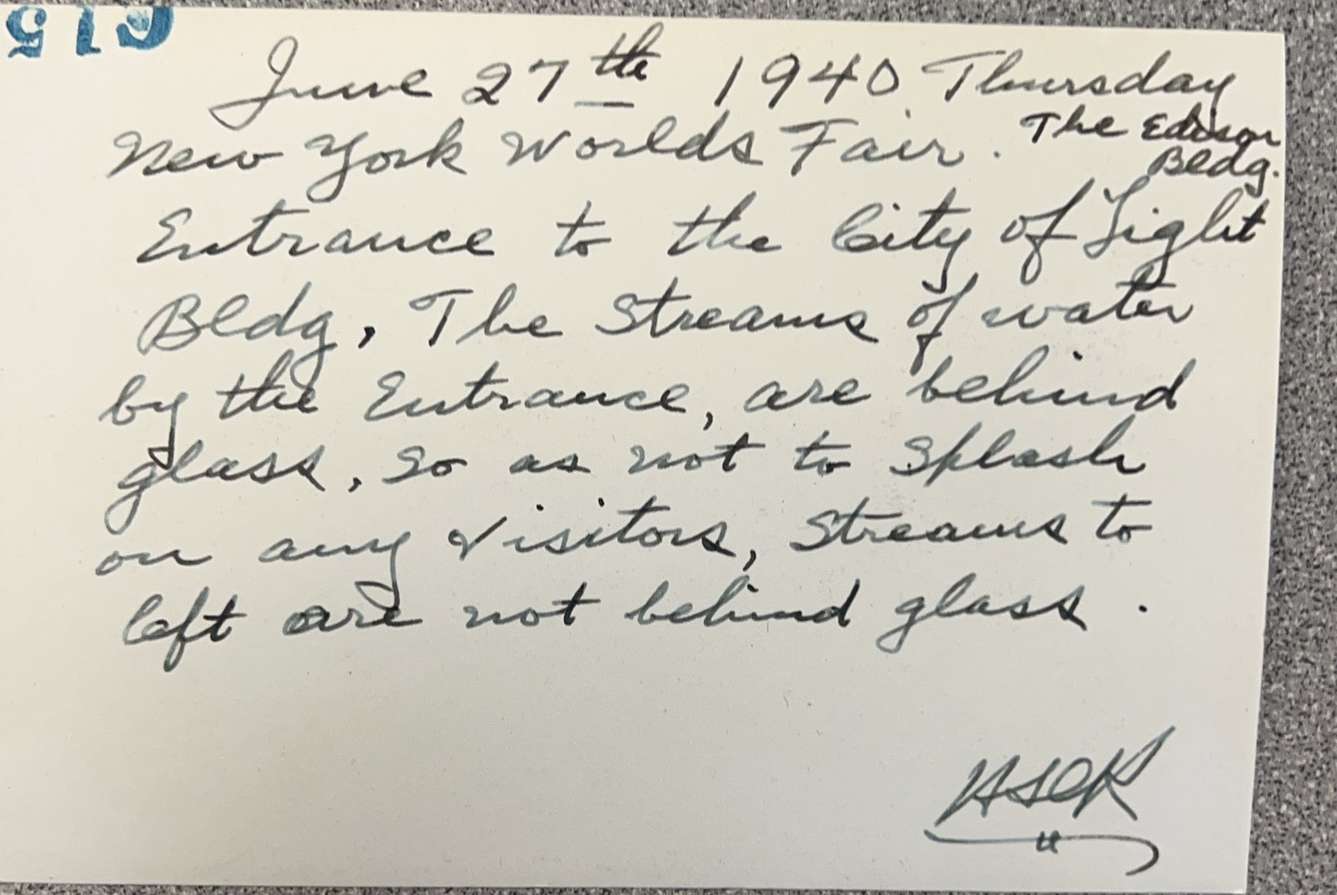 June 27th 1940 Thursday
New York Worlds Fair. The Edison
Bldg.
Entrance to the City of Light
Bldg, The Streams of water
by the Entrance, are behind
glass, so as not to splash
on any visitors, Streams to
left are not behind glass.